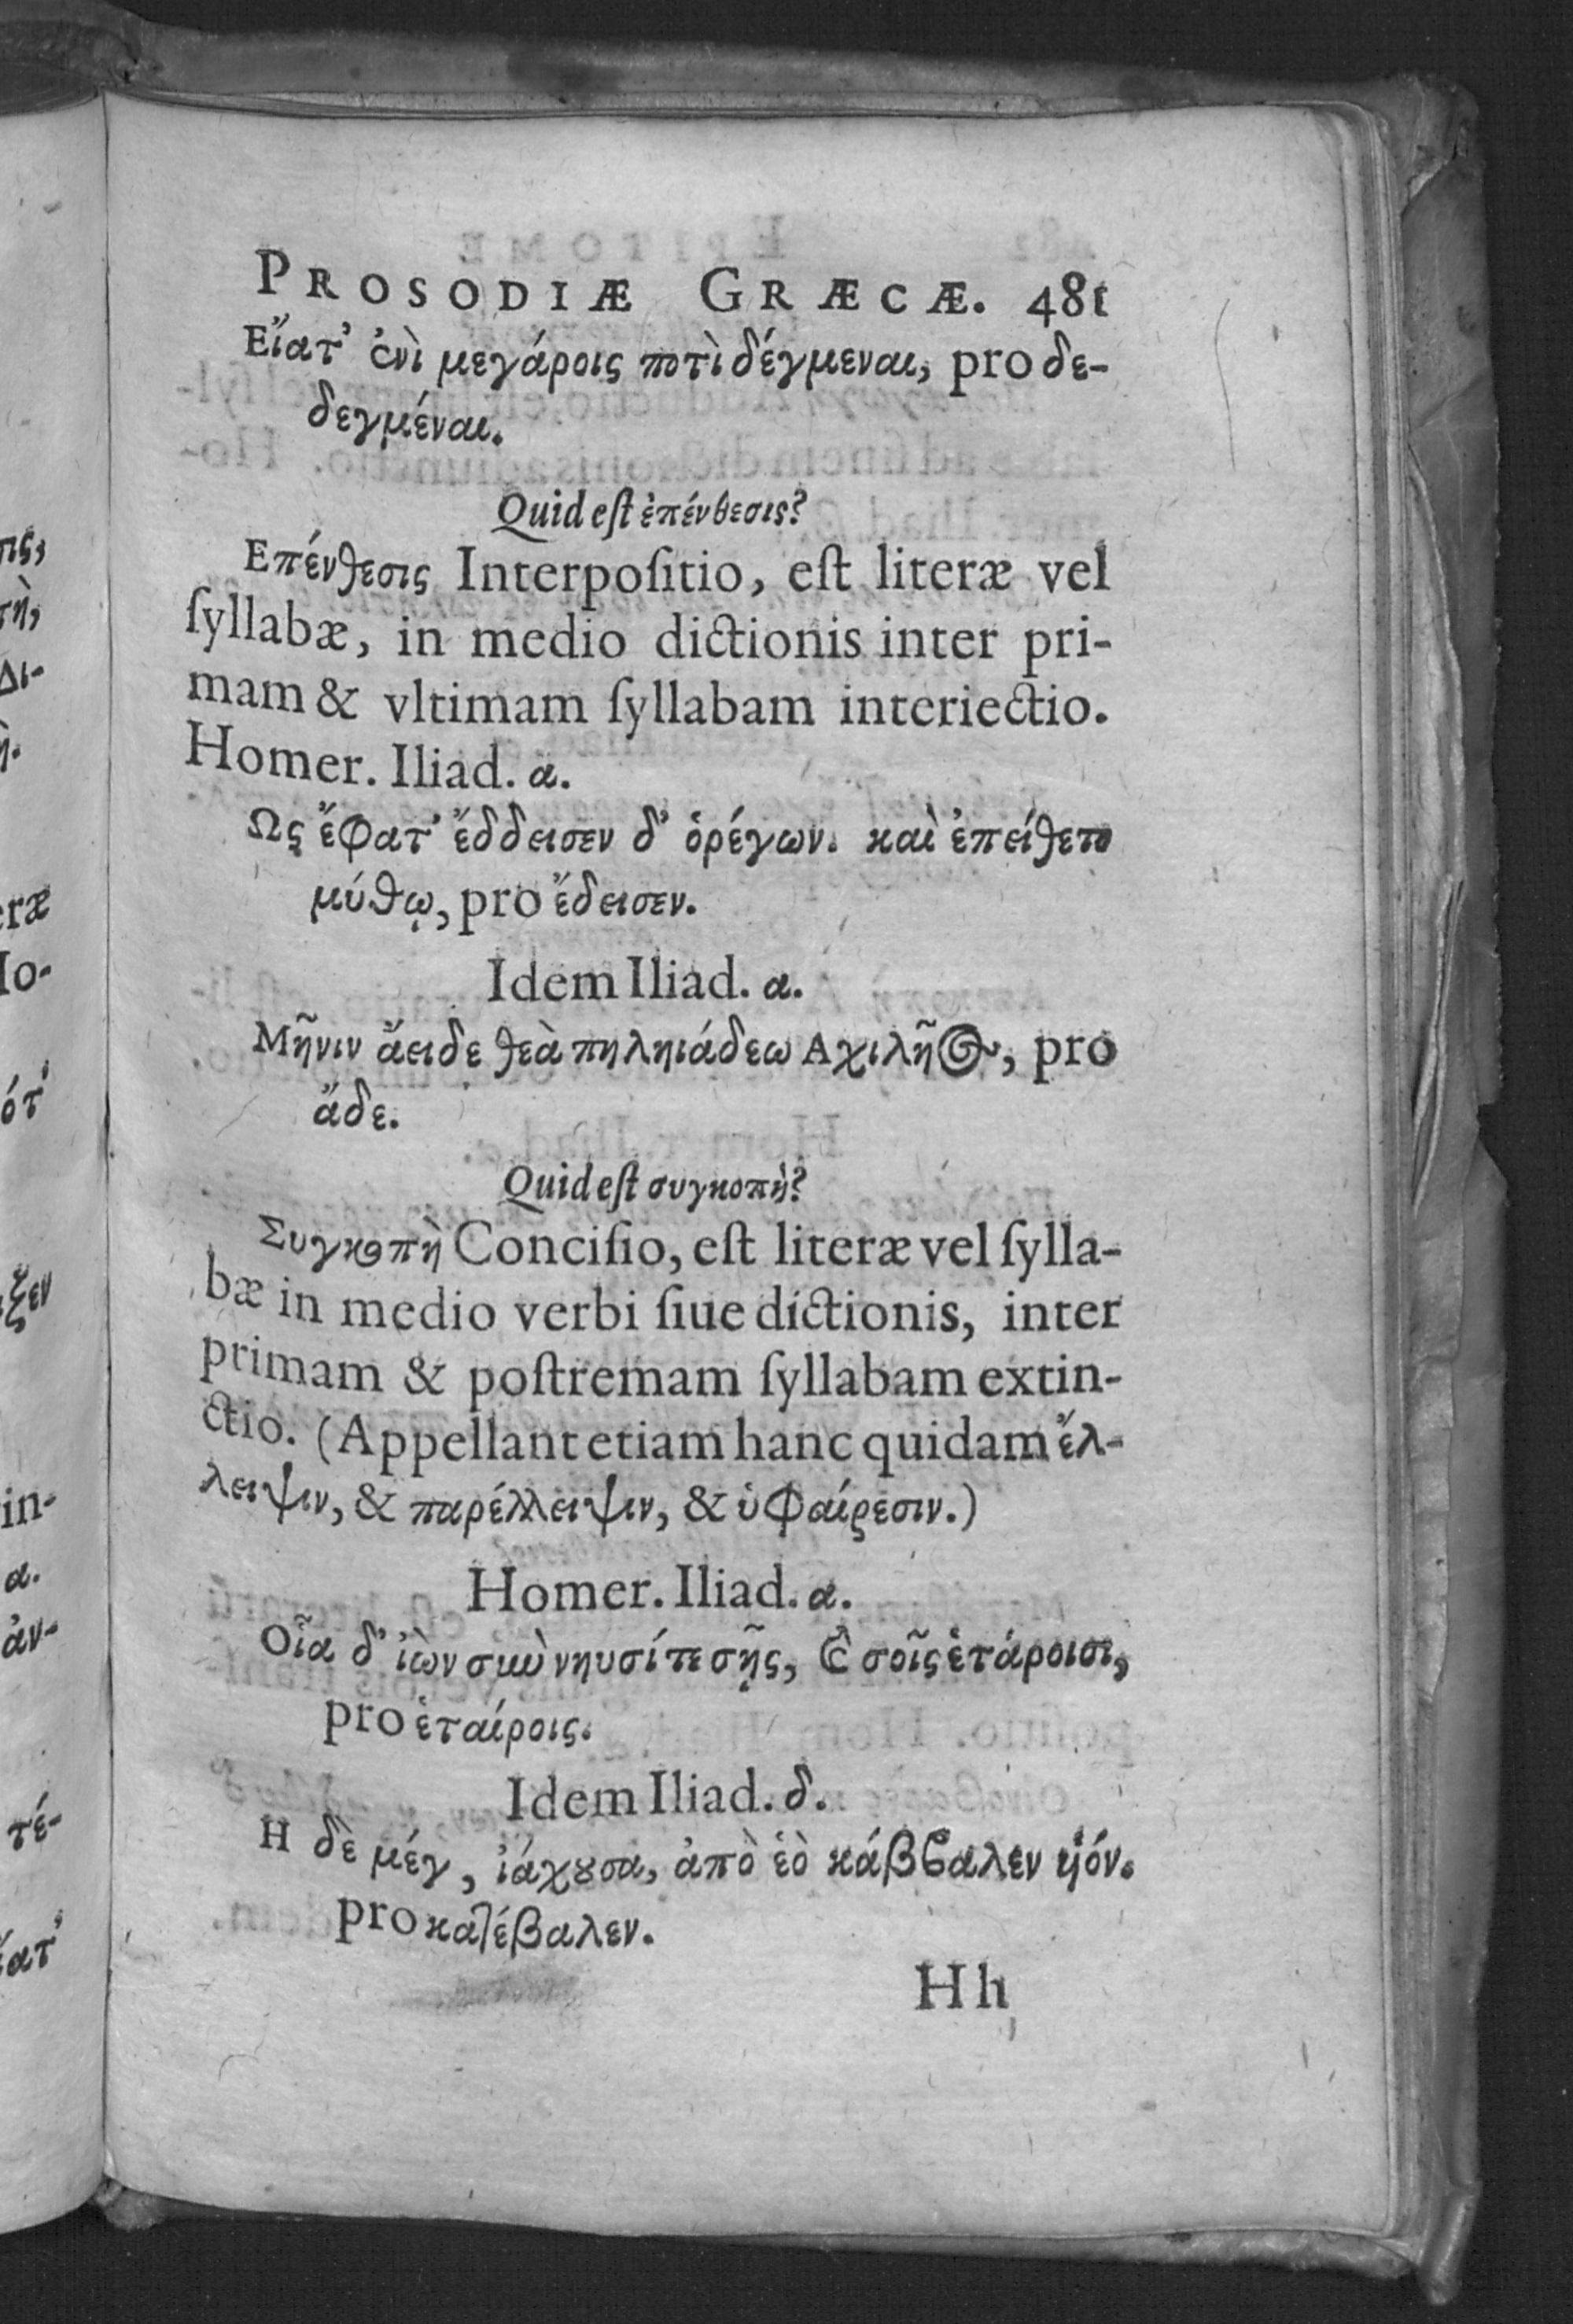 PROSODIÆ GRÆCÆ. 481
Εἵατ' ἐνὶ μεγάροις ποτὶ δέγμεναι, pro δε-
δεγμέναι.
Quid eſt ἐπένθεσις?
Επένθεσις Interpoſitio, eſt literæ vel
ſyllabæ, in medio dictionis inter pri-
mam & vltimam ſyllabam interiectio.
Homer. Iliad. α.
Ως ἔφατ' ἔδδεισεν δ' ὁρέγων. καὶ ἐπείθετο
μύθῳ, pro ἔδεισεν.
Idem Iliad. α.
Μῆνιν ἄειδε θεὰ πηληιάδεω Αχιλῆος, pro
ἄδε.
Quid eſt συγκοπὴ?
Συγκοπὴ Conciſio, eſt literæ vel ſylla-
bæ in medio verbi ſiue dictionis, inter
primam & poſtremam ſyllabam extin-
ctio. (Appellant etiam hanc quidam ἔλ-
λειψιν, & παρέλλειψιν, & ὑφαίρεσιν.)
Homer. Iliad. α.
Οἷα δ' ἰὼν σὺν νηυσί τε σῇς, καὶ σοῖς ἑτάροισι,
pro ἑταίροις.
Idem Iliad. δ.
Η δὲ μέγ, ἰάχουσα, ἀπὸ ἑὸ κάββαλεν ὑιόν.
pro κατέβαλεν.
Hh
πις,
τὴ,
Δι-
ὴ.
eræ
Ho-
ότ'
ξεν
in-
α.
ἀν-
τέ-
ἵατ'